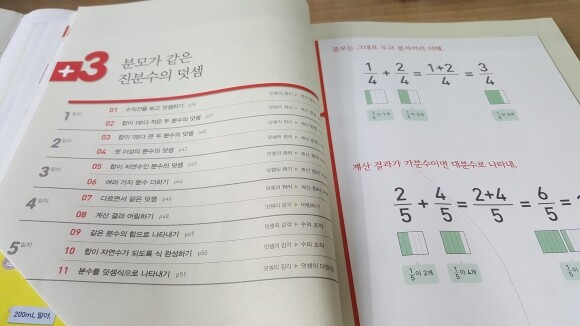 +3 분모가 같은
진분수의 덧셈
1일차
01 수직선을 보고 덧셈하기 p36
02 합이 1보다 작은 두 분수의 덧셈 p37
2일차
03 합이 1보다 큰 두 분수의 덧셈 p40
04 셋 이상의 분수의 덧셈 p42
3일차
05 합이 자연수인 분수의 덧셈 p43
06 여러 가지 분수 더하기 p44
4일차
07 다르면서 같은 덧셈 p46
08 계산 결과 어림하기 p48
5일차
09 같은 분수의 합으로 나타내기 p49
10 합이 자연수가 되도록 식 완성하기 p50
11 분수를 덧셈식으로 나타내기 p51
덧셈의 원리 ▶ 계산
덧셈의 감각 ▶ 수의 조작
덧셈의 감각 ▶ 수의 조작
덧셈의 감각 ▶ 덧셈의 다양성
분모는 그대로 두고 분자끼리 더해.
1/4 + 2/4 = 1+2/4 = 3/4
계산 결과가 가분수이면 대분수로 나타내.
2/5 + 4/5 = 2+4/5 = 6/5 =
1/5이 2개
1/5이 4개
200mL 말야.